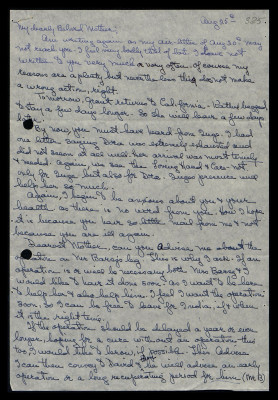 Aug 25th 325
My dearly Beloved Mother:
Am writing again as my letter of Aug 20th may
not reach you. I feel very badly that I have not
written to you very much & very often, of course my
reasons are aplenty but nonetheless this does not make
a wrong action right.
Tomorrow, Grant returns to California - Betty begged
to stay a few days longer. So she will leave a few days
later.
By now you must have heard from Inga. I had
one letter saying Dora was extremely exhausted and
did not seem at all well. Her arrival was most timely
& needed. Again we see the loving Hand & Care not
only for Inga but also for Dora. Inga's presence will
help her so much.
Again, I begin to be anxious about you & your
health as there is no word from you. How I hope
it is because you have so little mail from me & not
because you are ill again.
Dearest Mother, can you Advise me about the
operation on Mr Barry's leg? This is why I ask. If an
operation is or will be necessary both Mrs Barry & I
would like to have it done soon - as I want to be here
to help her & also help him. I feel I want the operation
soon, so I can be free to leave for India - if & when
it is the right time.
If the operation should be delayed a year or even
longer, hoping for a cure without an operation this
too I would like to know, if possible. This Advice
I can then convey to David & he will advise an early
operation or a long recuperating period for him (Mr B)